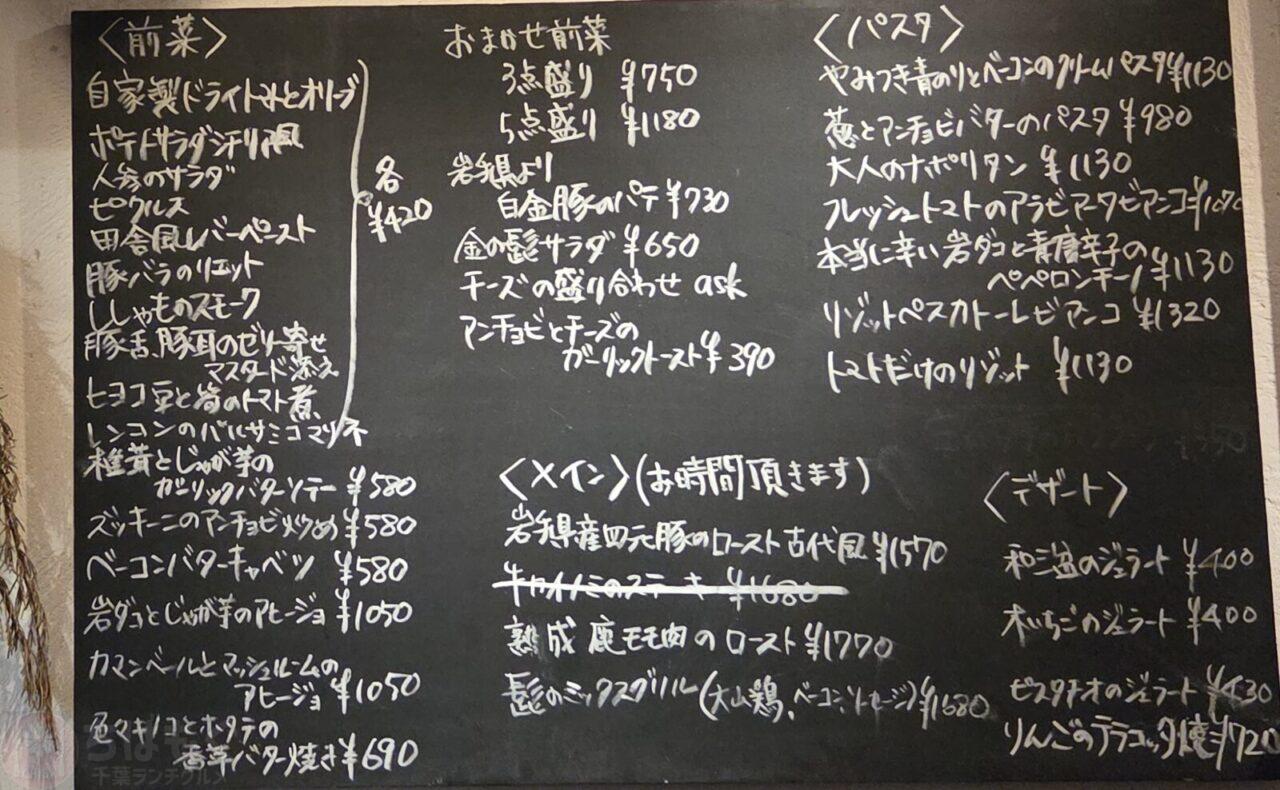 〈前菜〉
自家製ドライトマトとオリーブ
ポテトサラダシチリア風
人参のサラダ
ピクルス
田舎風レバーペースト
豚バラのリエット
ししゃものスモーク
豚舌、豚耳のゼリー寄せ
マスタード添え
ヒヨコ豆と筍のトマト煮
レンコンのバルサミコマリネ
各
¥420
椎茸とじゃが芋の
ガーリックバターソテー ¥580
ズッキーニのアンチョビ炒め ¥580
ベーコンバターキャベツ ¥580
岩ダコとじゃが芋のアヒージョ ¥1050
カマンベールとマッシュルームの
アヒージョ ¥1050
色々キノコとホタテの
香草バター焼き ¥690
おまかせ前菜
3点盛り ¥750
5点盛り ¥1180
岩手県より
白金豚のパテ ¥730
金の髭サラダ ¥650
チーズの盛り合わせ ask
アンチョビとチーズの
ガーリックトースト ¥390
〈パスタ〉
やみつき青のりとベーコンのクリームパスタ ¥1130
葱とアンチョビバターのパスタ ¥980
大人のナポリタン ¥1130
フレッシュトマトのアラビアータビアンコ ¥1070
本当に辛い岩ダコと青唐辛子の
ペペロンチーノ ¥1130
リゾットペスカトーレビアンコ ¥1320
トマトだけのリゾット ¥1130
〈メイン〉(お時間頂きます)
岩手県産四元豚のロースト古代風 ¥1570
牛カイノミのステーキ ¥1680
熟成鹿モモ肉のロースト ¥1770
髭のミックスグリル(大山鶏、ベーコン、ソーセージ) ¥1680
〈デザート〉
和三盆のジェラート ¥400
木いちごのジェラート ¥400
ピスタチオのジェラート ¥430
りんごのテラコッタ焼 ¥720
千葉ランチグルメ